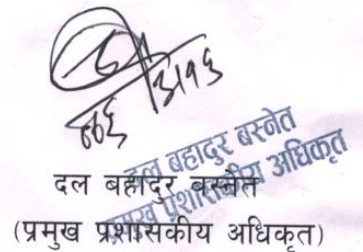 दल बहादुर बस्नेत
प्रमुख प्रशासकीय अधिकृत
दल बहादुर बस्नेत
(प्रमुख प्रशासकीय अधिकृत)